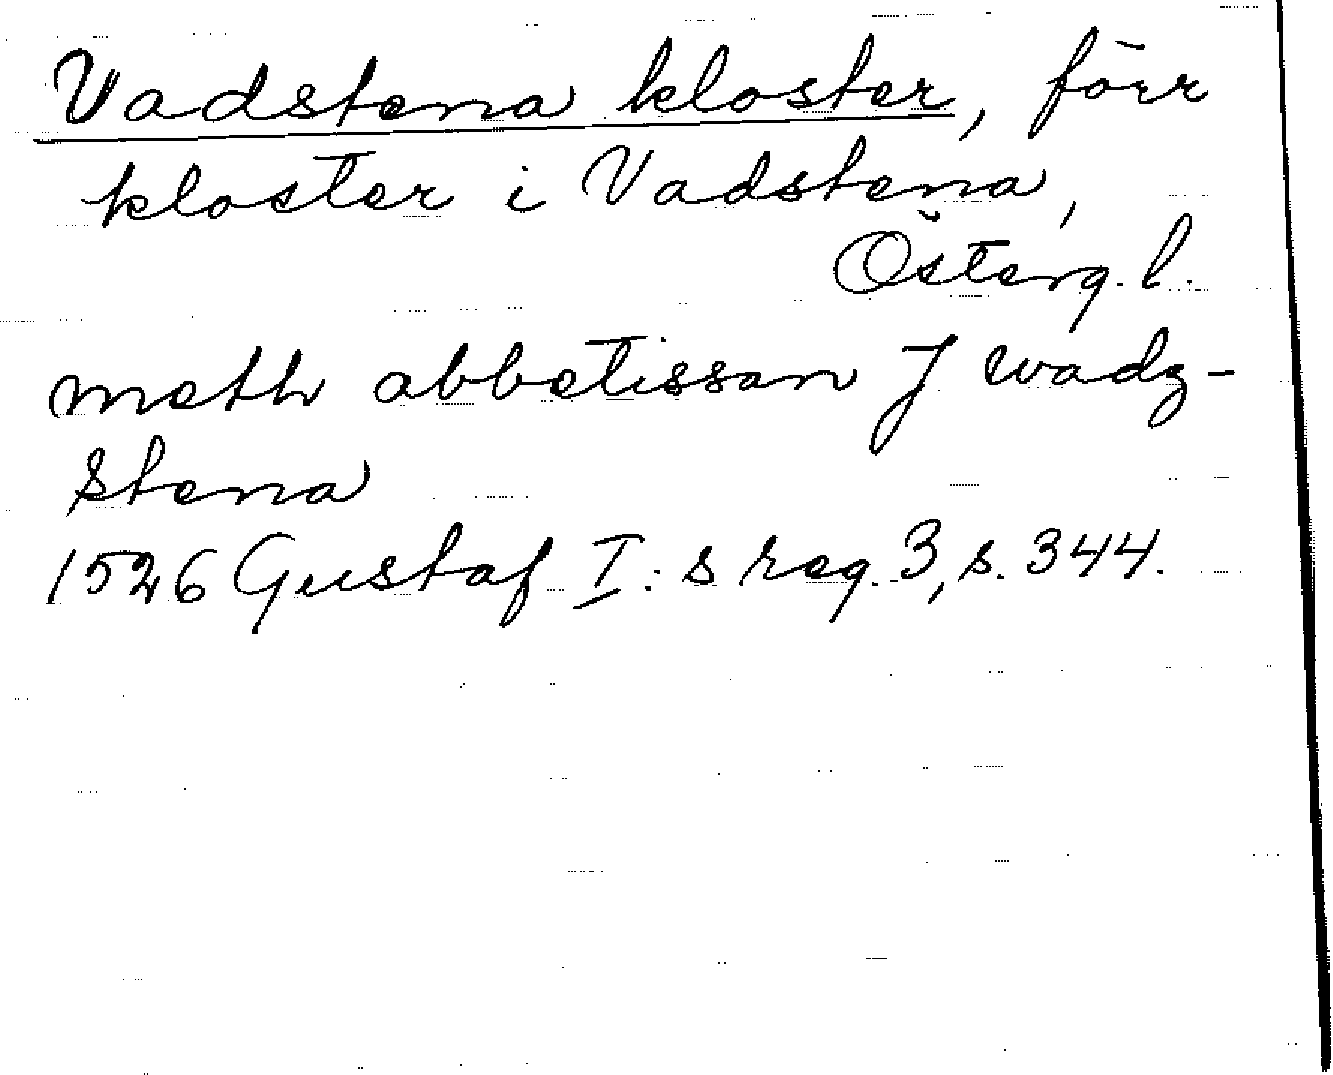 Vadstena kloster, förr
kloster i Vadstena,
Österg. l.
meth abbetissan J wadz-
stena
1526 Gustaf I:s reg. 3, s. 344.